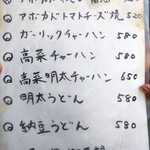 アボカドトマトチーズ焼 520
ガーリックチャーハン 580
高菜チャーハン 580
高菜明太チャーハン 650
明太うどん 580
納豆うどん 580